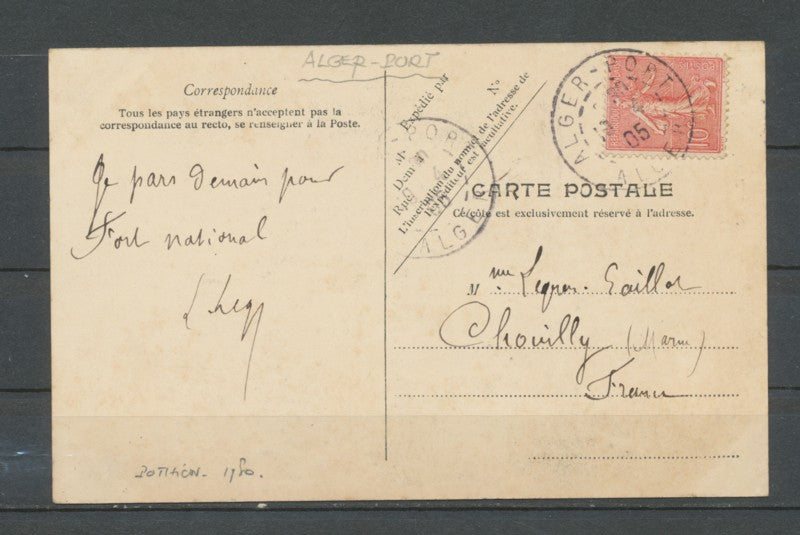 ALGER-PORT
Correspondance
Tous les pays étrangers n'acceptent pas la
correspondance au recto, se renseigner à la Poste.
Je pars demain pour
Fort national
Expédié par
N°
M
Demeurant
Rue
L'inscription du nom et de l'adresse de
l'expéditeur est facultative.
ALGER-PORT
05
ALGER
CARTE POSTALE
Ce côté est exclusivement réservé à l'adresse.
Mme Legras Gaillot
Chouilly (Marne)
France
POTHION - 1980.